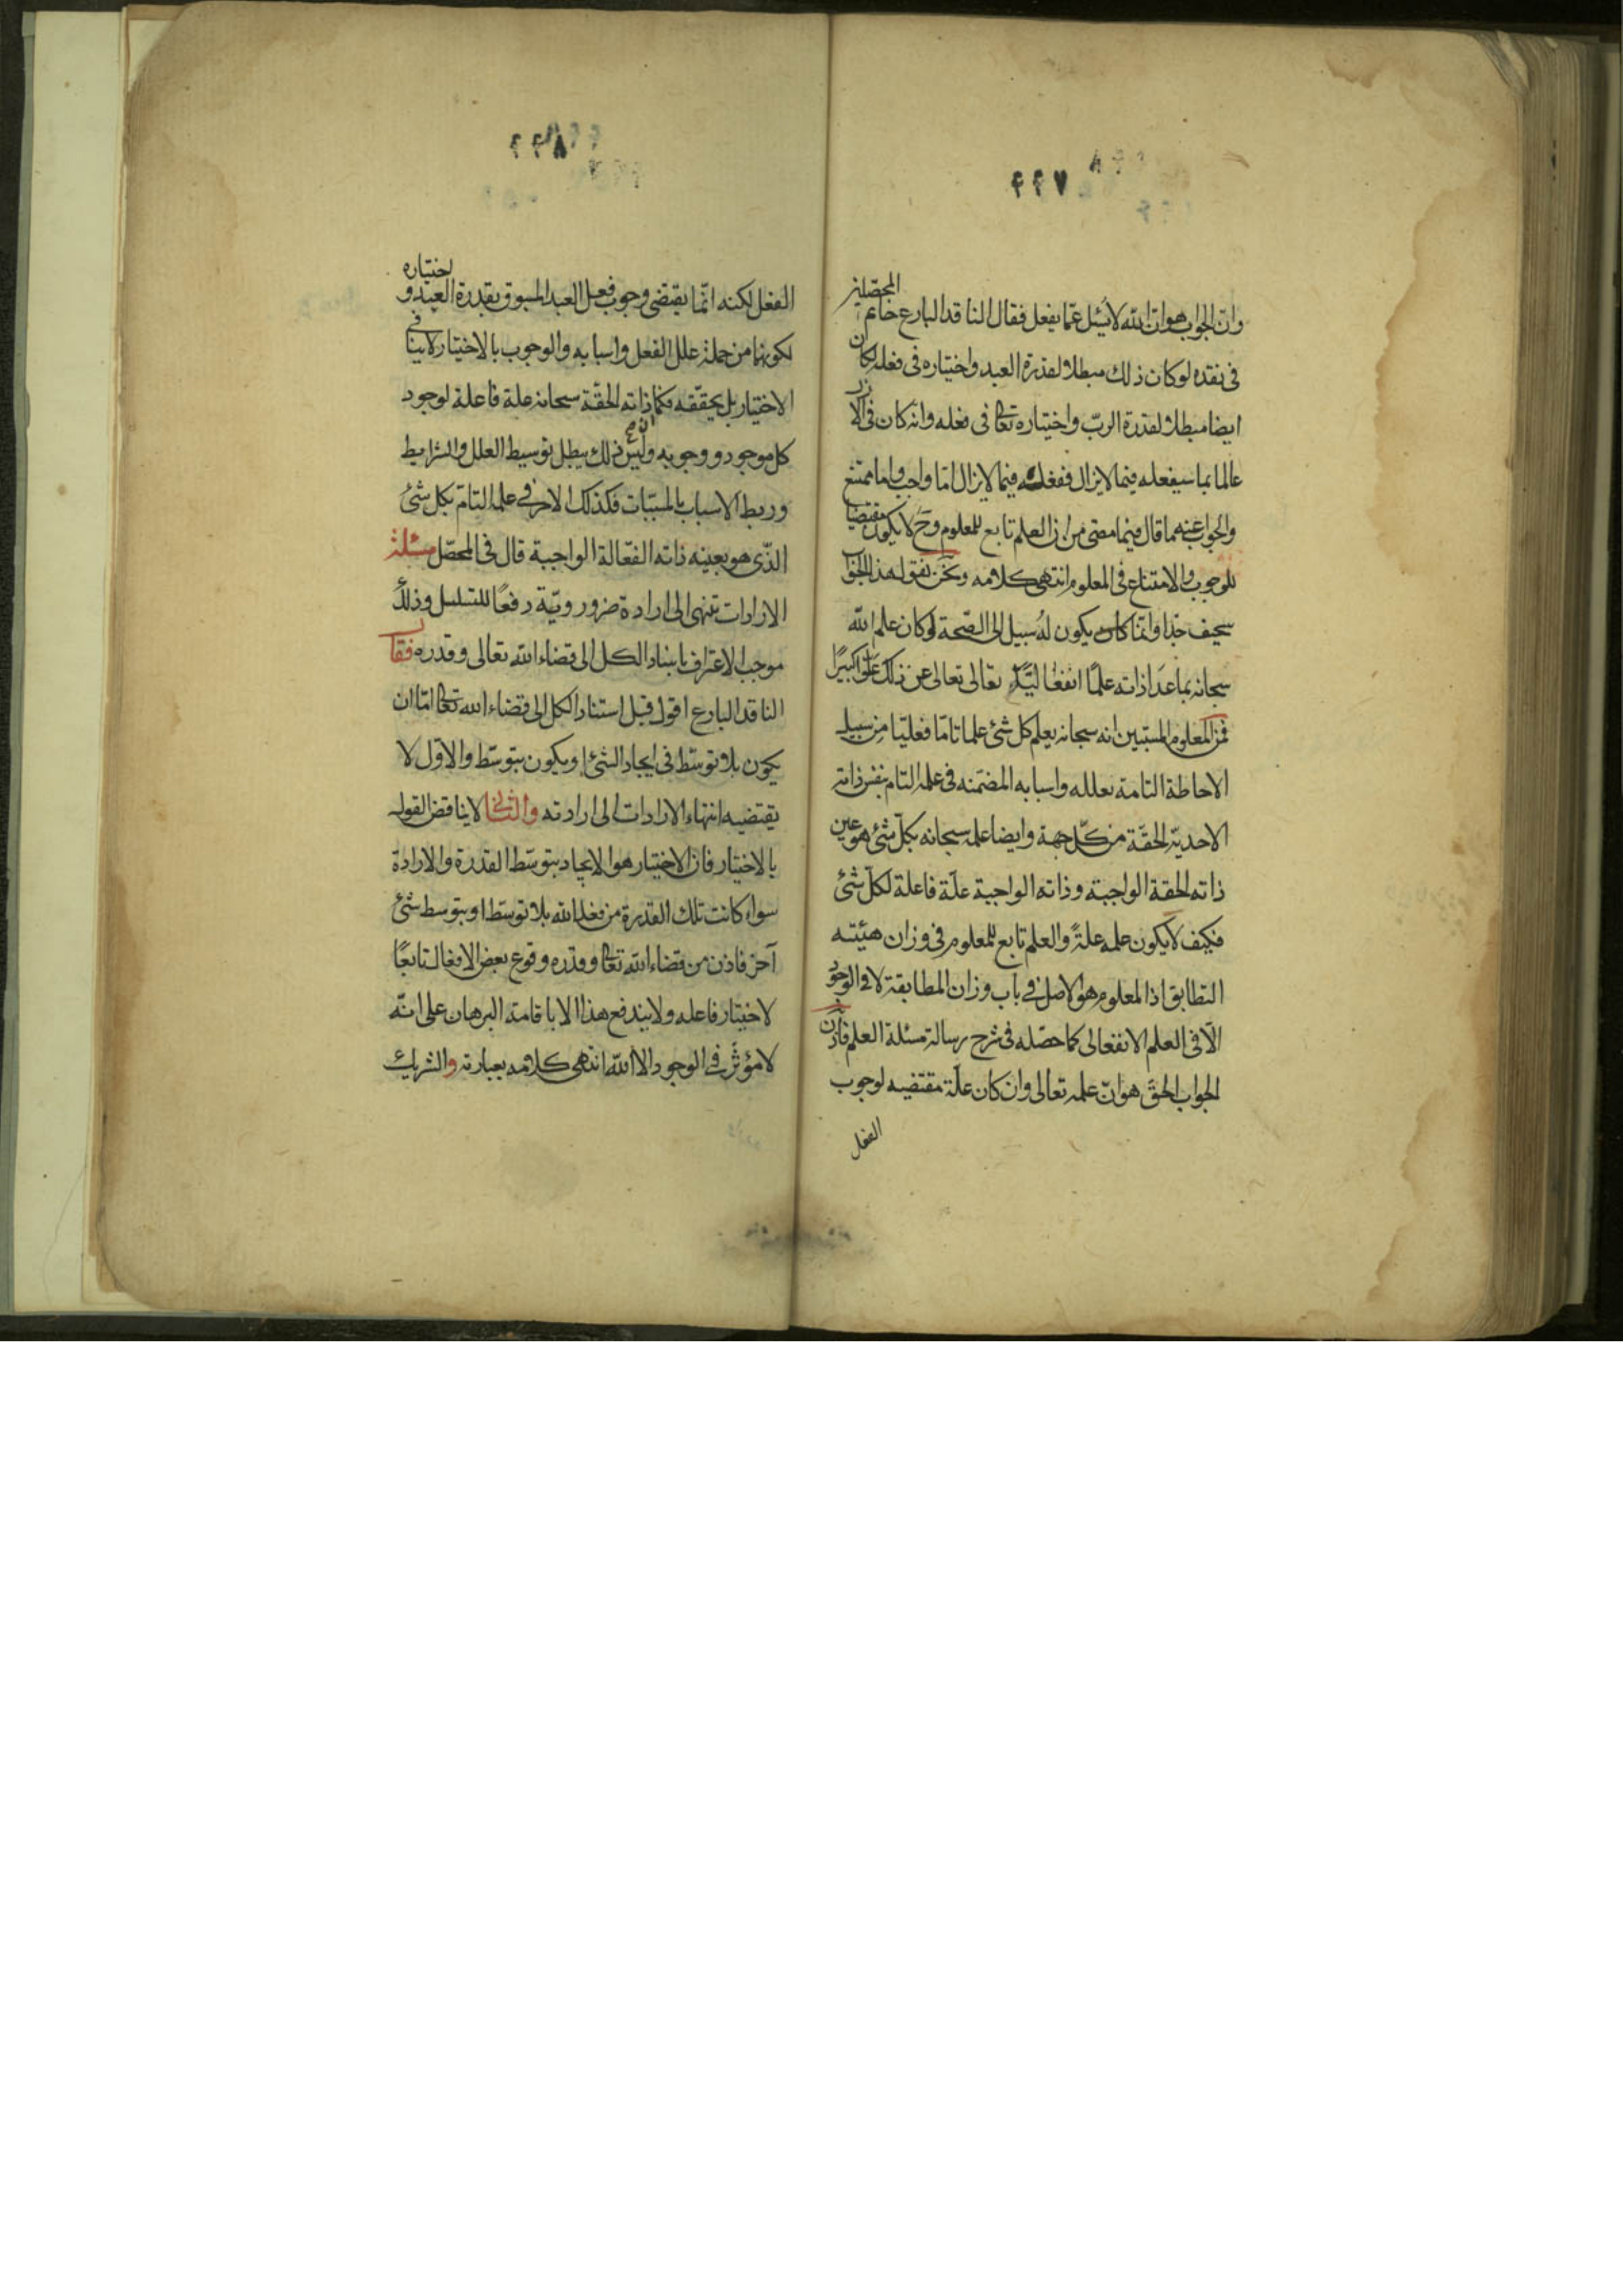 ٤٤٧
وانّ الجواب هو انّ الله لا يُسئل عمّا يفعل فقال الناقد البارع خاتم المحصّلين
فى نقده لو كان ذلك مبطلا لقدرة العبد واختياره فى فعله لكان
ايضا مبطلا لقدرة الربّ واختياره تعالى فى فعله وانه كان فى الازل
عالما بما سيفعله فيما لا يزال ففعله فيما لا يزال امّا واجب واما ممتنع
والجواب عنه ما قال فيما مضى من ان العلم تابع للمعلوم وحَ لا يكون مقتضيا
للوجوب والامتناع فى المعلوم انتهى كلامه ونحن نقول هذا الجواب
سخيف جدا وانما كان يكون له سبيل الى الصّحة لو كان علم الله
سبحانه بما عَدا ذاته علمًا انفعاليًا تعالى عن ذلك علوّا كبيرًا
فمن المعلوم المستبين انه سبحانه يعلم كل شئ علما تامّا فعليّا من سبيل
الاحاطة التامة بعلله واسبابه المضمنه فى علمه التام بنفس ذاته
الاحديّة الحقّة من كلّ جهة وايضا علمه سبحانه بكلّ شئ هو عين
ذاته الحقة الواجبة وذاته الواجبة علّة فاعلة لكلّ شئ
فكيف لا يكون علمه علةً والعلم تابع للمعلوم فى وزان هيئته
التطابق اذ المعلوم هو الاصل فى باب وزان المطابقة لا فى الوجود
الّا فى العلم الانفعالى كما حصّله فى شرح رسالة مسئلة العلم فاذن
الجواب الحقّ هو انّ علمه تعالى وان كان علّة مقتضيه لوجوب
الفعل
٤٤٨
الفعل لكنه انّما يقتضى وجوب فعل العبد المسبوق بقدرة العبد و اختياره
لكونهما من جملة علل الفعل واسبابه والوجوب بالاختيار لا ينافى
الاختيار بل يحققه فكما ذاته الحقّة سبحانه علة فاعلة لوجود
كل موجود ووجوبه وليس ذلك يبطل توسيط العلل والشرايط
وربط الاسباب بالمسبّبات فكذلك الامر فى علمه التامّ بكل شئ
الذّى هو بعينه ذاته الفعّالة الواجبة قال فى المحصّل مسئلة
الارادات تنتهى الى ارادة ضروروريّة دفعًا للتسلسل وذلك
موجب الاعتراف باسناد الكل الى قضاء الله تعالى وقدره فقال
الناقد البارع اقول قيل استناد الكل الى قضاء الله تعالى امّا ان
يكون بلا توسّط فى ايجاد الشئ او يكون بتوسّط والاوّل لا
يقتضيه انتهاء الارادات الى ارادته والثانى لا يناقض القول
بالاختيار فان الاختيار هو الايجاد بتوسّط القدرة والارادة
سواء كانت تلك القدرة من فعل الله بلا توسّط او بتوسط شئ
آخر فاذن من قضاء الله تعالى وقدره وقوع بعض الافعال تابعًا
لاختيار فاعله ولا يندفع هذا الا باقامة البرهان على انّه
لا مؤثّر فى الوجود الا الله انتهى كلامه بعبارته والشريك